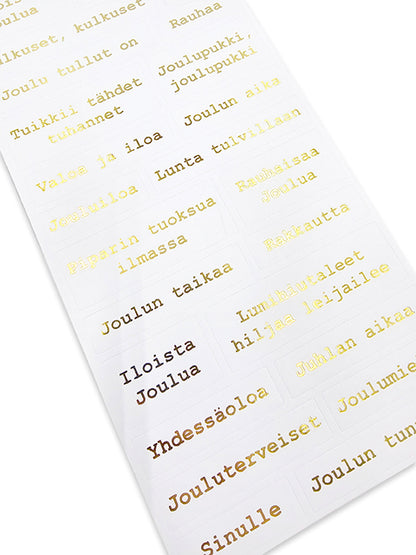 Joulua
Rauhaa
kulkuset
Joulu tullut on
Joulupukki,
joulupukki
Tuikkii tähdet
tuhannet
Joulun aika
Valoa ja iloa
Lunta tulvillaan
Jouluiloa
Rauhaisaa
Joulua
Piparin tuoksua
ilmassa
Rakkautta
Joulun taikaa
Lumihiutaleet
hiljaa leijailee
Iloista
Joulua
Juhlan aikaa
Yhdessäoloa
Joulumie
Jouluterveiset
Joulun tun
Sinulle